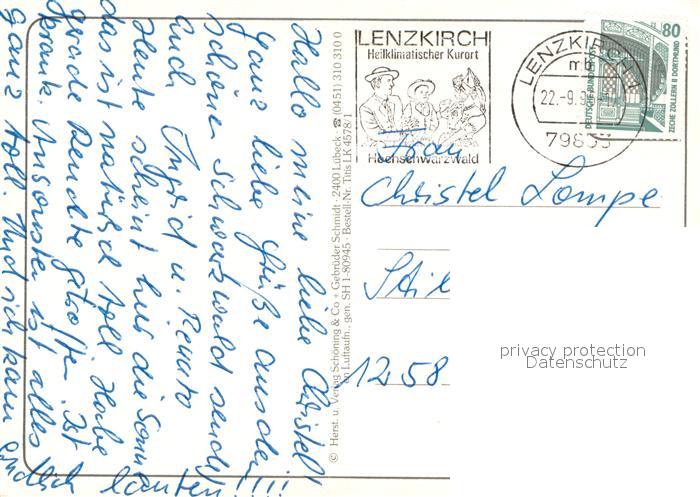 Hallo meine liebe Christel!
Ganz liebe Grüße aus dem
schönen Schwarzwald sendet
auch Ingrid u. Renato
Heute scheint hier die Sonne
das ist natürlich toll. Habe
gerade Renate getroffen. Ist
krank. Ansonsten ist alles
ganz toll. Und ich kann
endlich laufen!!!!
© Herst. u. Verlag Schöning & Co + Gebrüder Schmidt · 2400 Lübeck · ☎ (04 51) 310 310 0
Luftaufn., gen. SH 1-80945 · Bestell-Nr. Titis LK 4578/1
LENZKIRCH
Heilklimatischer Kurort
Hochschwarzwald
LENZKIRCH
mb
22.-9.9
79853
80
DEUTSCHE BUNDESPOST
ZECHE ZOLLERN II DORTMUND
Frau
Christel Lompe
12.58
privacy protection
Datenschutz